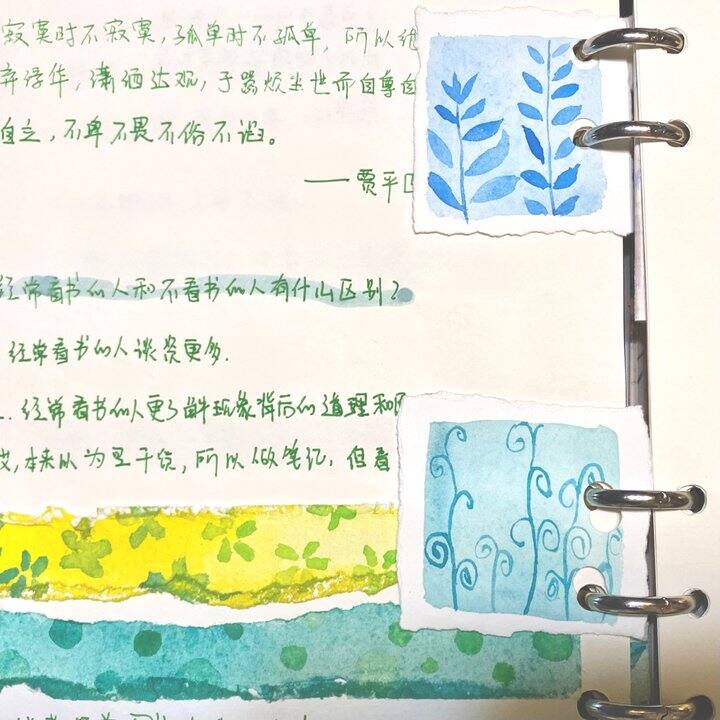 寂寞时不寂寞，孤单时不孤单，所以绝
弃浮华，潇洒达观，于嚣烦尘世而自尊自
自立，不卑不畏不俗不谄。
——贾平
经常看书的人和不看书的人有什么区别？
经常看书的人谈资更多.
经常看书的人更了解现象背后的道理和
哎，本来以为是干货，所以做笔记，但看